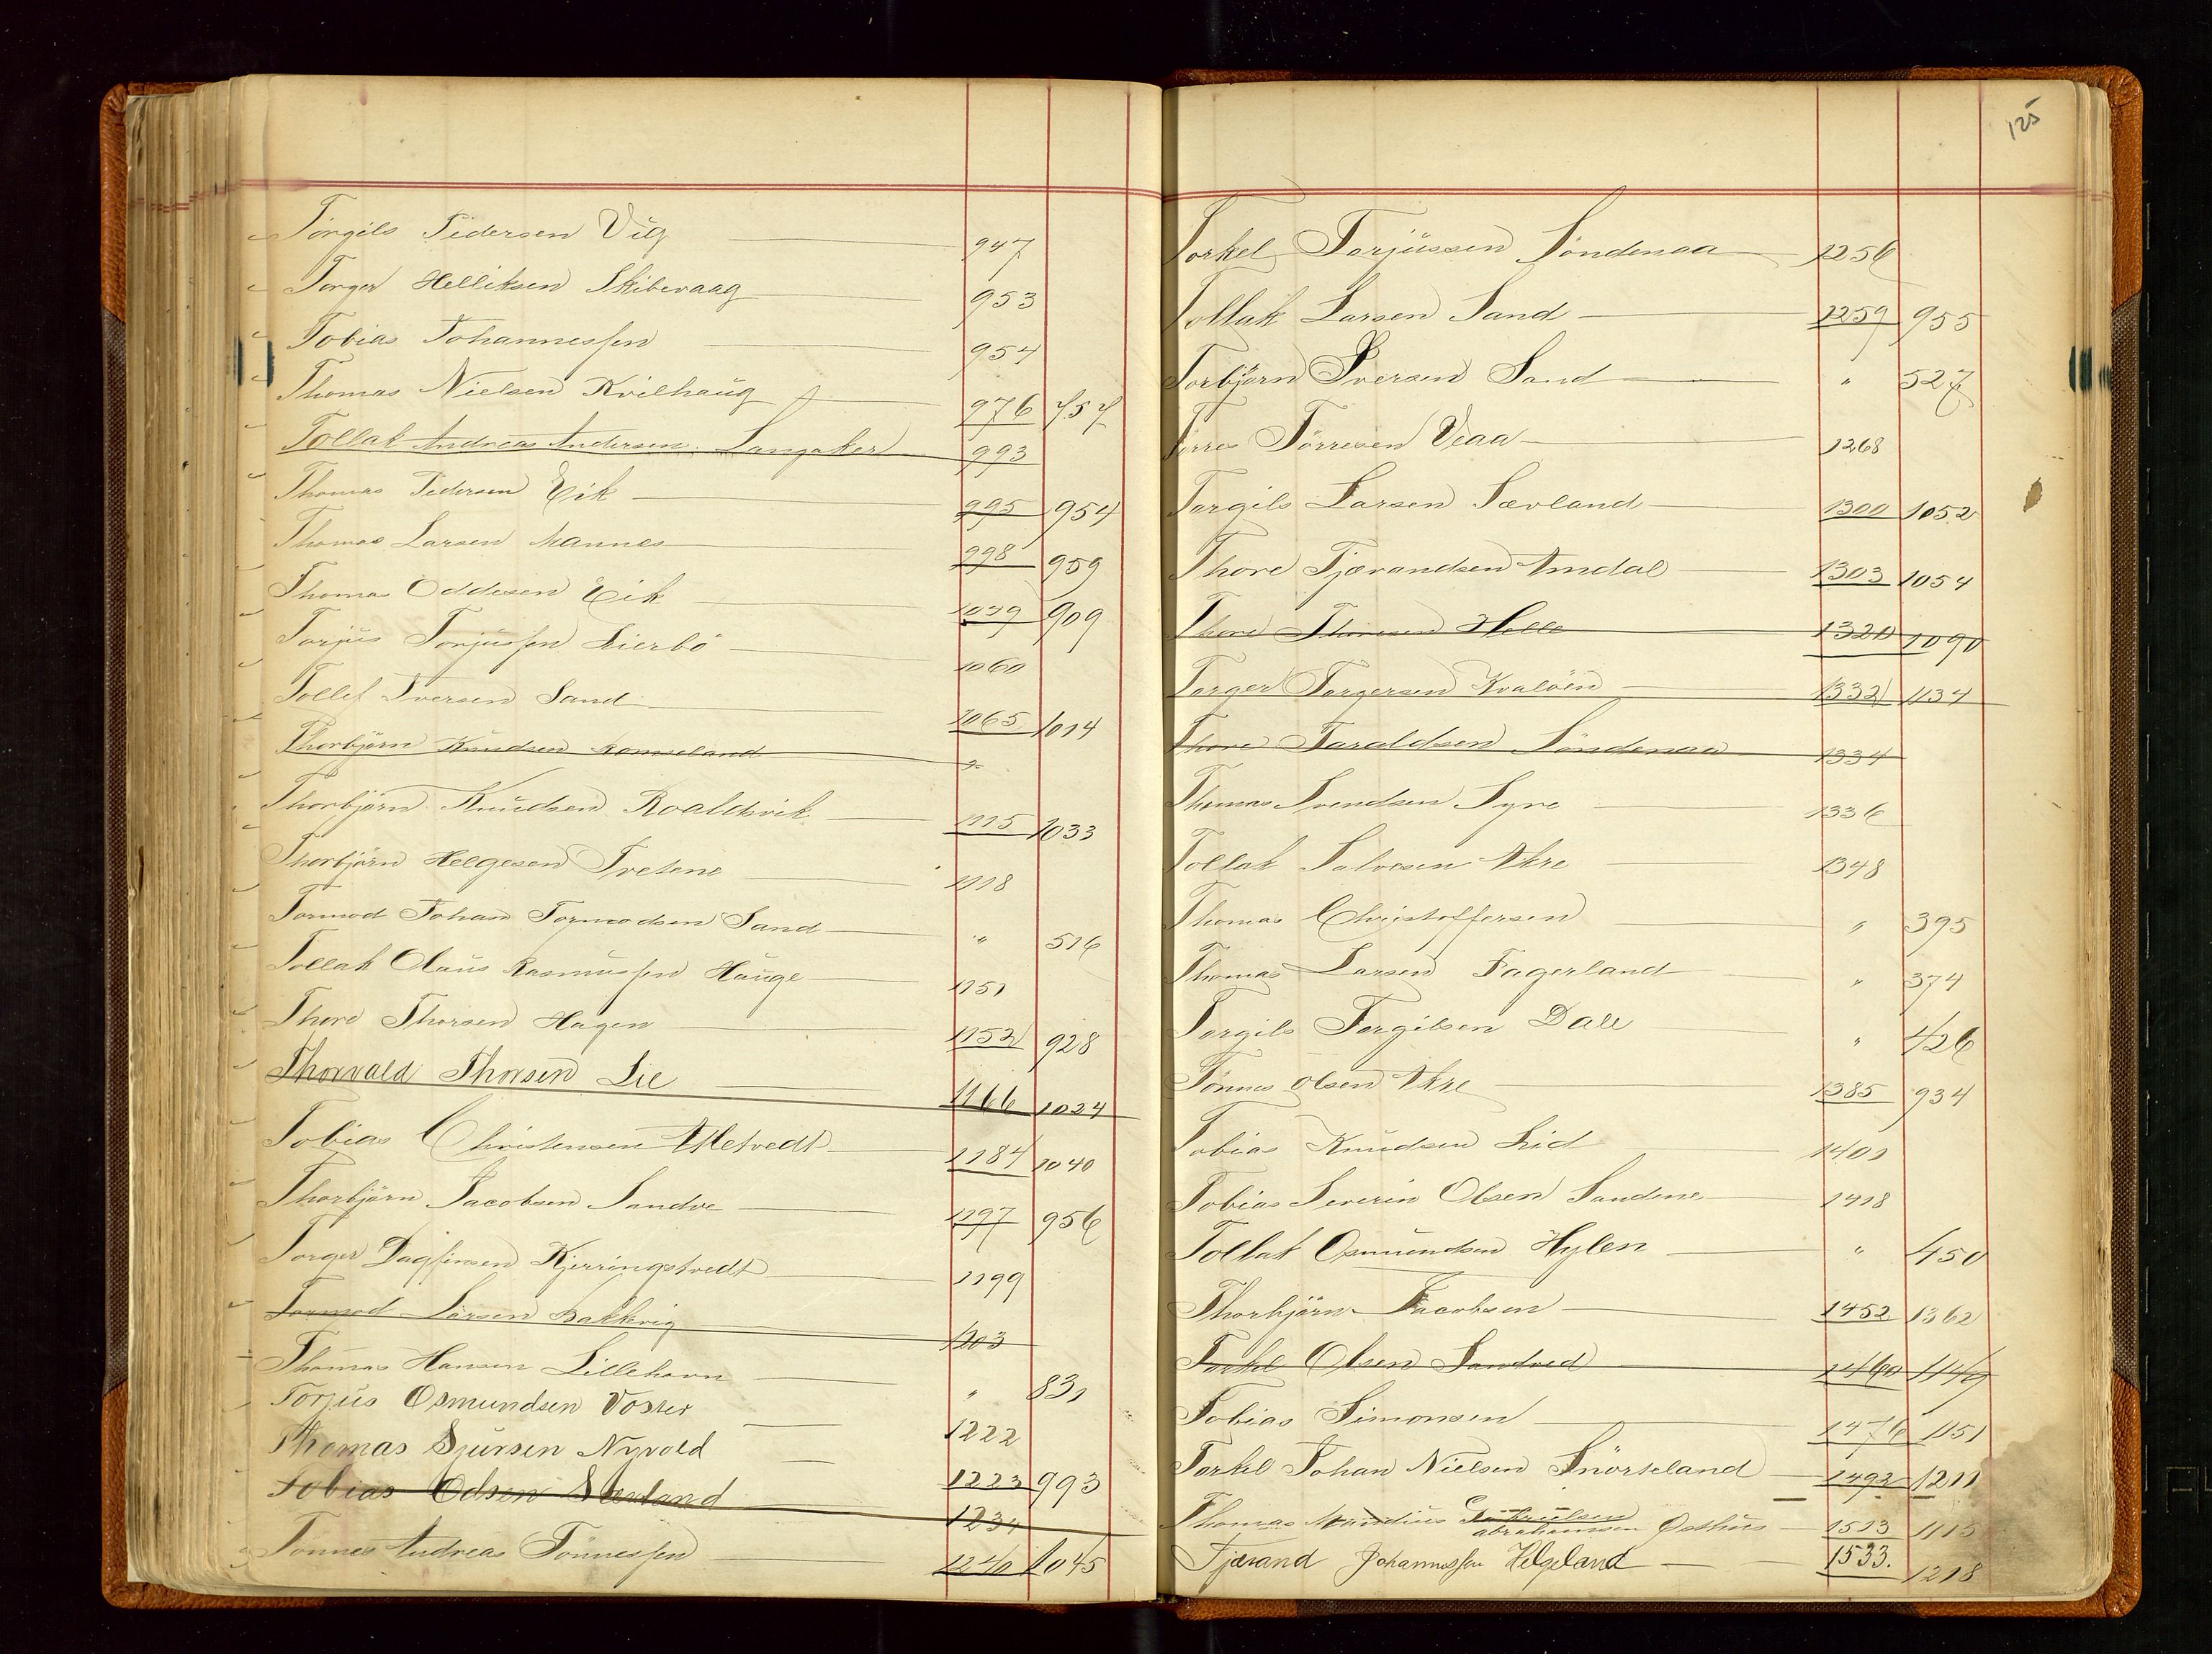 Torgils Pedersen Vig 947
Torger Helliksen Skibevaag 953
Tobias Johannessen 954
Thomas Nielsen Kvilhaug 976 757
Tollak Andreas Andersen Langaker 993
Thomas Pedersen Eik 995 954
Thomas Larsen Mannes 998 959
Thomas Oddesen Eik 1039 909
Torjus Torjussen Lierbö 1060
Tollef Iversen Sand 1065 1014
Thorbjörn Knudsen Romseland
Thorbjörn Knudsen Roaldsvik 1115 1033
Thorbjörn Helgesen Tvetene 1118
Tormod Johan Tormodsen Sand " 516
Tollak Olaus Rasmussen Hauge 1151
Thore Thorsen Hagen 1152 928
Thorvald Thorsen Lie 1166 1024
Tobias Christensen Aletvedt 1184 1040
Thorbjörn Jacobsen Sandve 1197 956
Torger Dagfinsen Kjerringstvedt 1199
Tormod Larsen Bakkevig 1203
Thomas Hansen Lillehavn " 831
Torjus Osmundsen Vostex 1222
Thomas Sjursen Nyvold 1223 993
Tobias Odsen Sævland 1234
Tönnes Andreas Tönnessen 1240 1045
125
Torkel Torjussen Söndenaa 1256
Tollak Larsen Sand 1259 955
Torbjörn Iversen Sand " 527
Törres Törresen Veaa 1268
Torgils Larsen Sævland 1300 1052
Thore Tjærandsen Amdal 1303 1054
Thore Thoresen Helle 1320 1090
Torger Torgersen Kvalöen 1332 1134
Thore Taraldsen Söndenaa 1334
Thomas Svendsen Syre 1336
Tollak Salvesen Akre 1348
Thomas Christoffersen " 395
Thomas Larsen Fagerland " 374
Torgils Torgilsen Dale " 426
Tönnes Olsen Akre 1385 934
Tobias Knudsen Lid 1401
Tobias Severin Olsen Sandene 1418
Tollak Osmundsen Hylen " 450
Thorbjörn Jacobsen 1452 1362
Torkel Olsen Sandved 1460 1149
Tobias Simonsen 1476 1151
Torkel Johan Nielsen Snörteland 1492 1211
Thomas Mandius abrahamsen Østhus 1513 1115
Tjærand Johannessen Helgeland 1533. 1218